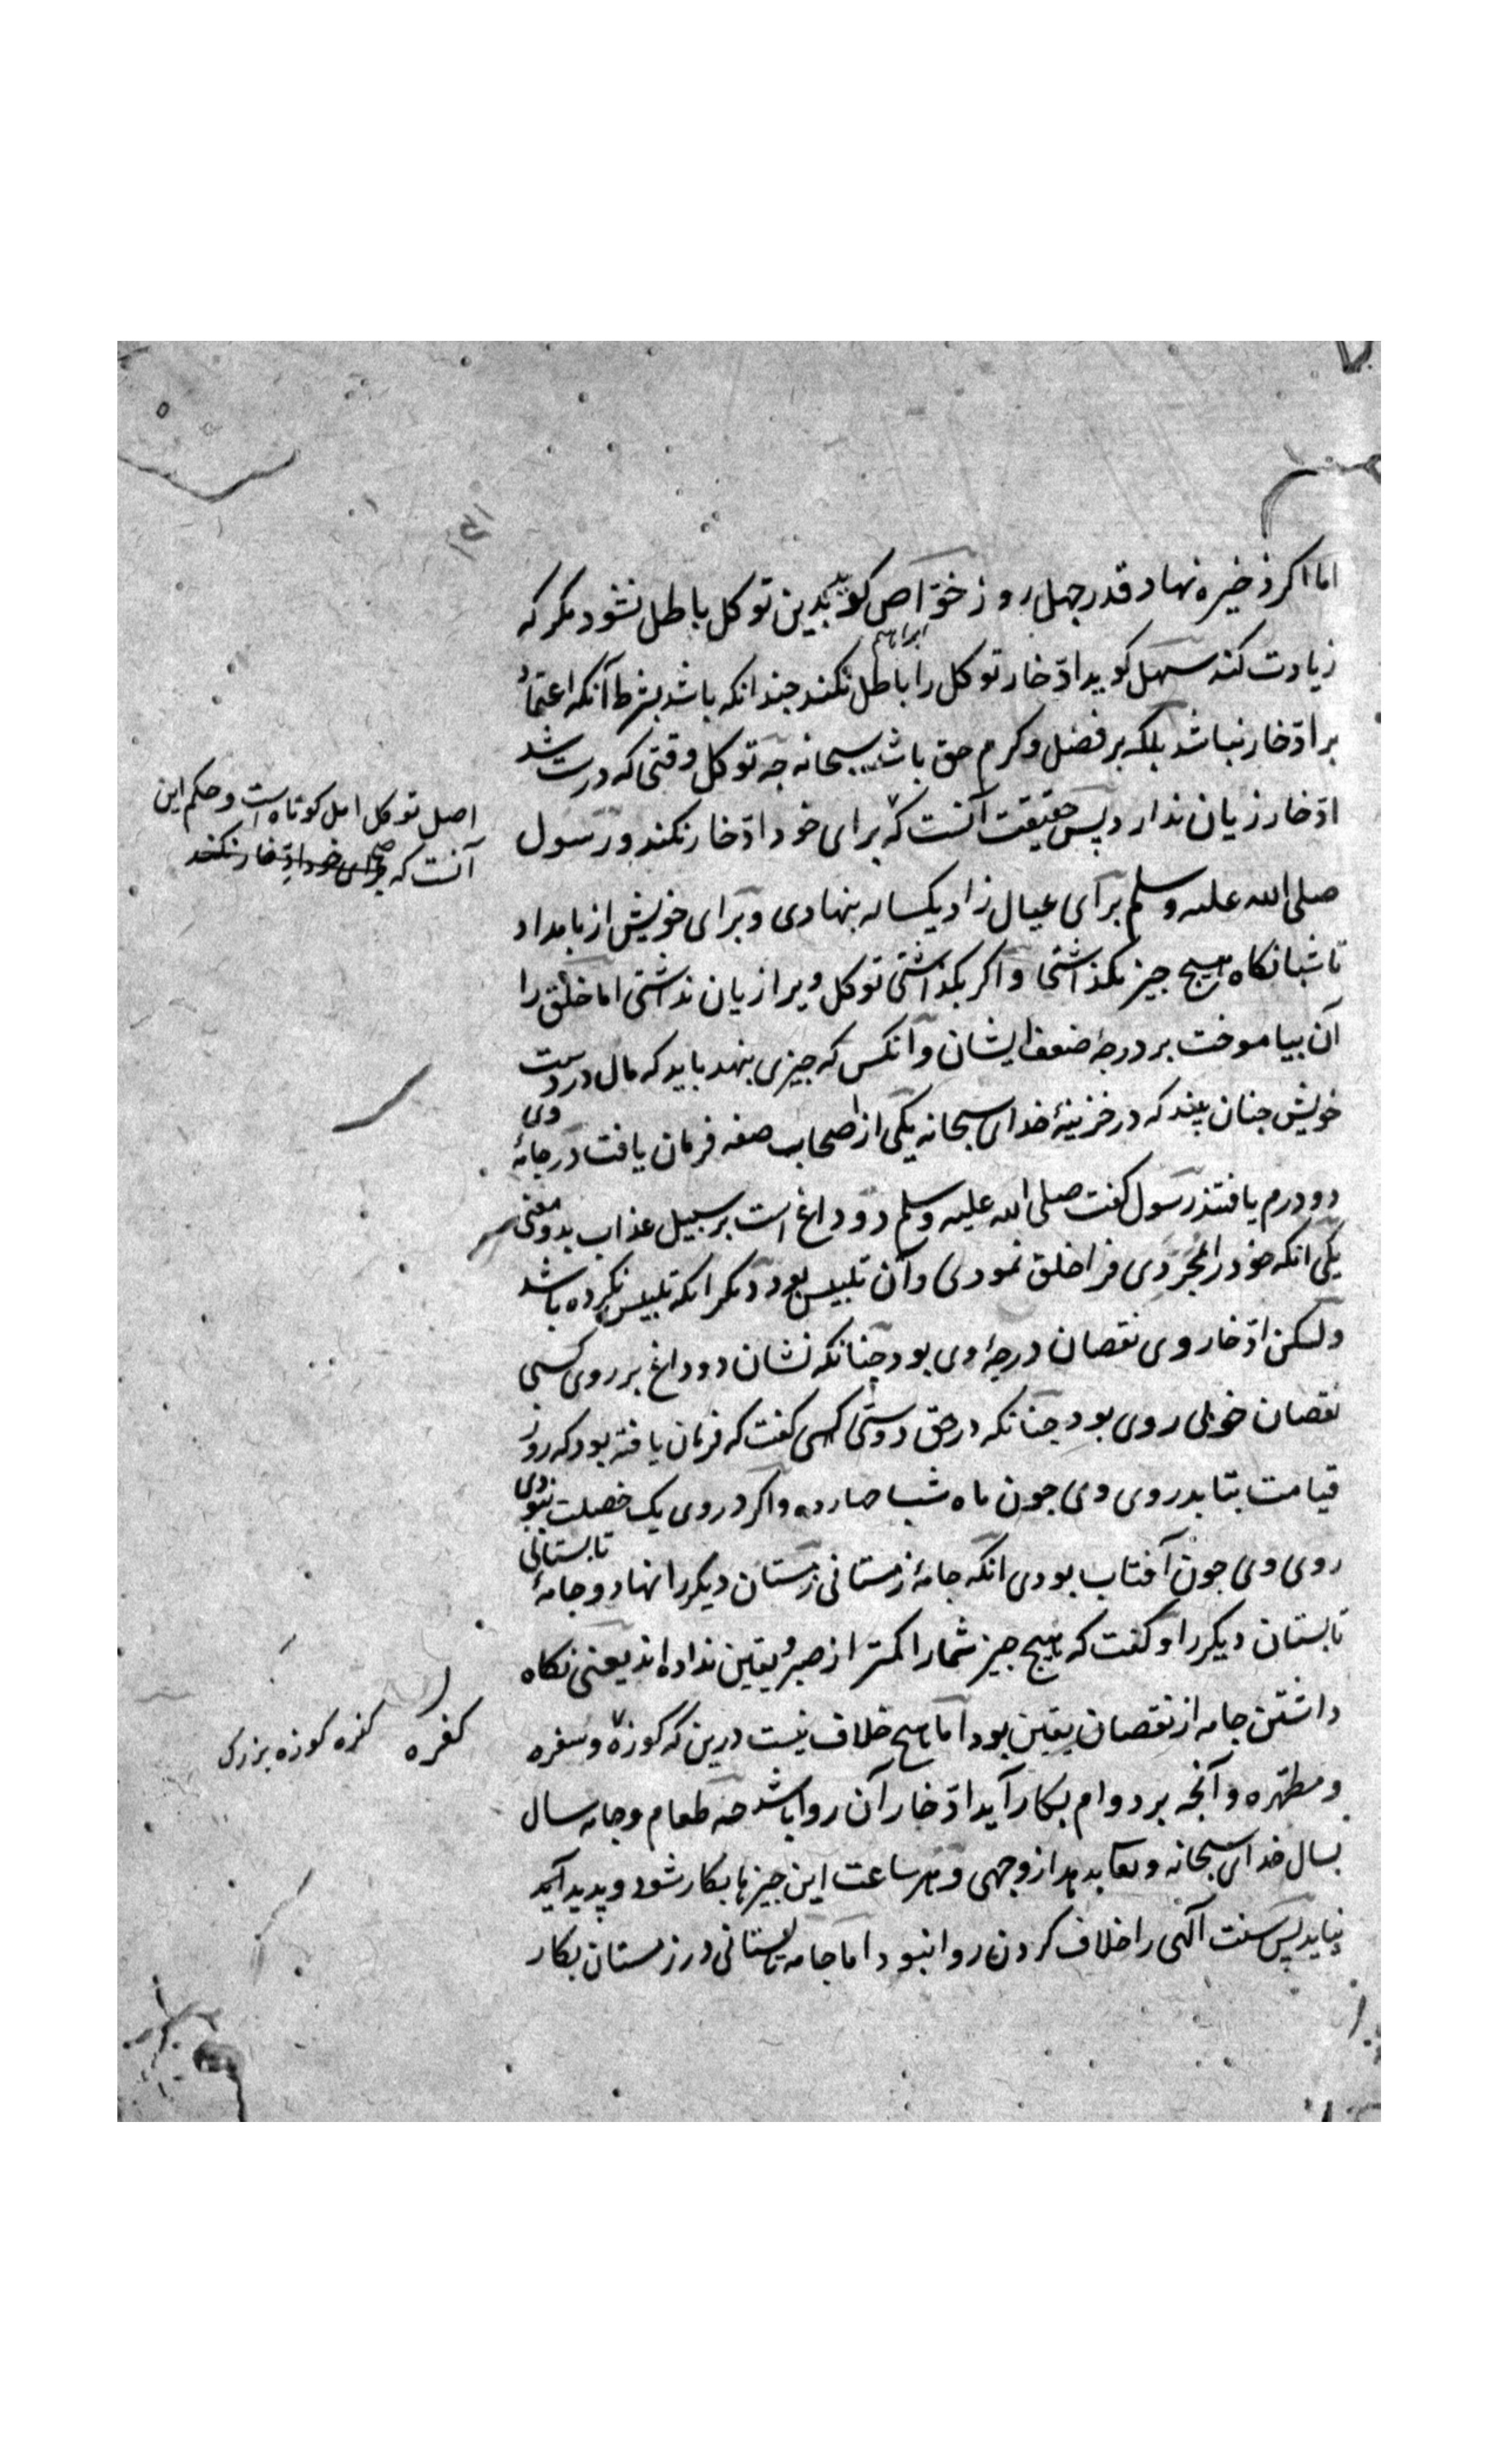 اما اکر ذخیره نهاد قدر جهل روز خوّاص کوید بدین توکل باطل نشود مکر که
زیادت کند سهل کوید ادّخار توکل را باطل نکند جندانکه باشد بشرط آنکه اعتماد
ابراهیم
بر ادّخار نباشد بلکه بر فضل و کرم حق باشد سبحانه جه توکل وقتی که درست شد
ادّخار زیان ندارد پس حقیقت آنست که برای خود ادّخار نکند و رسول
اصل توکل امل کوتاه است و حکم این
آنست که برای خود ادّخار نکند
صلی الله علیه وسلم برای عیال زاد یکساله بنهادی و برای خویش از بامداد
تا شبانکاه هیج جیز نکذاشتی و اکر بکذاشتی توکل ویرا زیان نداشتی اما خلق را
آن بیاموخت بر درجهٔ ضعف ایشان و آنکس که جیزی بنهد باید که مال در دست
خویش جنان بیند که در خزینهٔ خدای سبحانه یکی از اصحاب صفه فرمان یافت در جامهٔ وی
دو درم یافتند رسول کفت صلی الله علیه وسلم دو داغ است بر سبیل عذاب بدو معنی
یکی انکه خود را مجرّدی فرا خلق نمودی و آن تلبیس بود دیکر انکه تلبیس نکرده باشد
ولکن ادّخار وی نقصان درجهٔ وی بود جنانکه نشان دو داغ بر روی کسی
نقصان خوبی روی بود جنانکه در حق درویشی کفت که فرمان یافته بود که روز
قیامت بتابد روی وی جون ماه شب جهارده و اکر در وی یک خصلت نبودی
روی وی جون آفتاب بودی انکه جامهٔ زمستانی زمستان دیکر را نهاد و جامهٔ تابستانی
تابستان دیکر را و کفت که هیج جیز شما را کمتر از صبر و یقین نداده اند یعنی نکاه
داشتن جامه از نقصان یقین بود اما هیج خلاف نیست درین که کوزه و سفره
کفره کنره کوزه بزرک
و مطهره و آنجه بر دوام بکار آید ادّخار آن روا باشد جه طعام و جامه سال
بسال خدای سبحانه و تعالی بدهد از وجهی و هر ساعت این جیزها بکار شود و پدید آید
نیاید پس سنت آلهی را خلاف کردن روا نبود اما جامه تابستانی در زمستان بکار